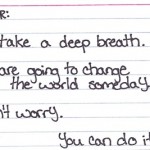 R:
take a deep breath.
are going to change
the world someday.
't worry.
You can do it